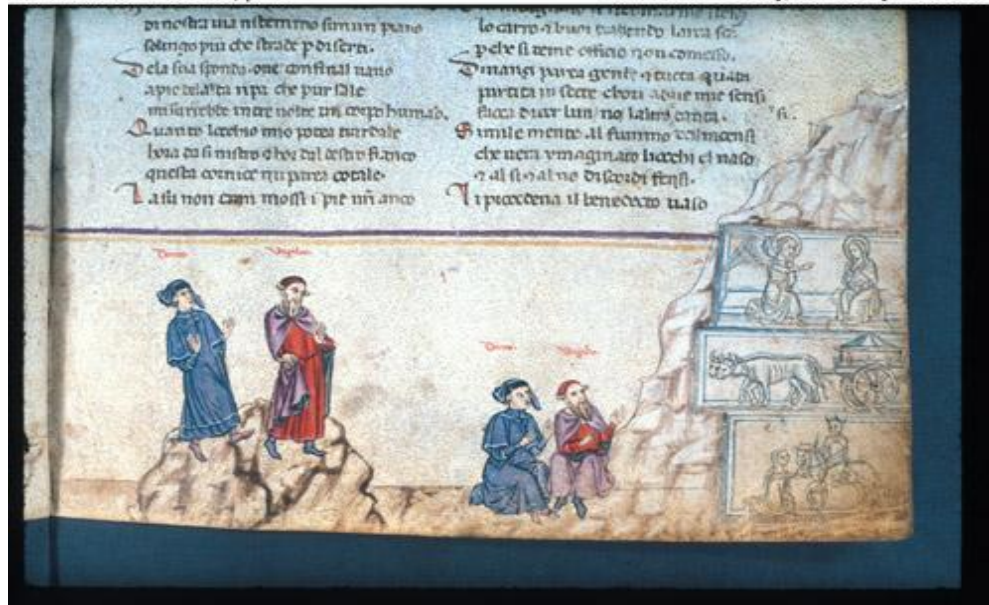 di nostra uia ristemmo un piano
solingo piu che strade p diserti.
Dela sua sponda. oue confinal uano
a pie delalta ripa che pur sale
misurrebbe intre uolte un corpo humao.
Quanto locchio mio potea trar dale
hora da sinistro 7 hor dal destro fianco
questa cornice mi parea cotale.
La su non eran mossi i pie nri anco
lo carro 7 buoi traendo larca
pche si teme officio non comesso.
Dinanzi parea gente 7 tucta quāta
partita in sette chori adue mie sensi
facea dicer lun no laltro canta. si.
Similemente al fummo delincensi
che uera ymaginato liocchi el naso
7 al si 7 al no discordi fensi.
Li precedeua il benedecto uaso